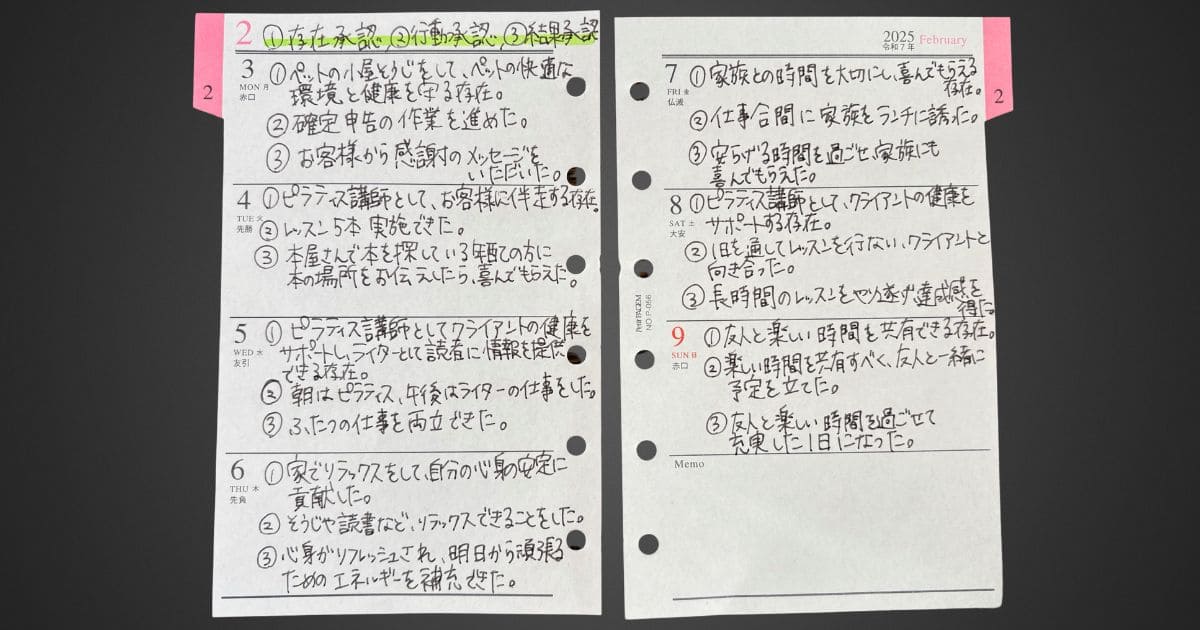 2 ①存在承認、②行動承認、③結果承認
2
3 ①ペットの小屋そうじをして、ペットの快適な
MON 月
赤口
環境と健康を守る存在。
②確定申告の作業を進めた。
③お客様から感謝のメッセージを
いただいた。
4 ①ピラティス講師として、お客様に伴走する存在。
TUE 火
先勝
②レッスン5本実施できた。
③本屋さんで本を探している年配の方に
本の場所をお伝えしたら、喜んでもらえた。
5 ①ピラティス講師としてクライアントの健康を
WED 水
友引
サポートし、ライターとして読者に情報を提供
できる存在。
②朝はピラティス、午後はライターの仕事をした。
③ふたつの仕事を両立できた。
6 ①家でリラックスをして、自分の心身の安定に
THU 木
先負
貢献した。
②そうじや読書など、リラックスできることをした。
③心身がリフレッシュされ、明日から頑張る
ためのエネルギーを補充できた。
2025 February
令和7年
2
7 ①家族との時間を大切にし、喜んでもらえる
FRI 金
仏滅
存在。
②仕事合間に家族をランチに誘った。
③安らげる時間を過ごせ、家族にも
喜んでもらえた。
8 ①ピラティス講師として、クライアントの健康を
SAT 土
大安
サポートする存在。
②1日を通してレッスンを行ない、クライアントと
向き合った。
③長時間のレッスンをやり遂げ達成感を
得た。
Petit PAGEM
NO.P-056
9 ①友人と楽しい時間を共有できる存在。
SUN 日
赤口
②楽しい時間を共有すべく、友人と一緒に
予定を立てた。
③友人と楽しい時間を過ごせて
充実した1日になった。
Memo